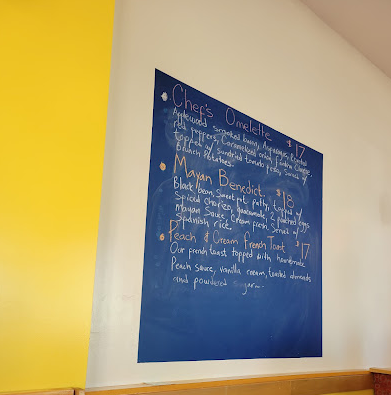 Chef's Omelette $17
Applewood smoked bacon, Asparagus, roasted
red peppers, Caramelized onion, fontina cheese,
topped w/ sundried tomato pesto, Served w/
Brunch Potatoes.
Mayan Benedict $18
Black bean, Sweet pot. patty, topped w/
Spiced chorizo, guacamole, 2 poached eggs
Mayan Sauce, Cream fresh, Served w/
Spanish rice.
Peach & Cream French Toast $17
Our french toast topped with homemade
Peach sauce, vanilla cream, toasted almonds
and powdered sugar